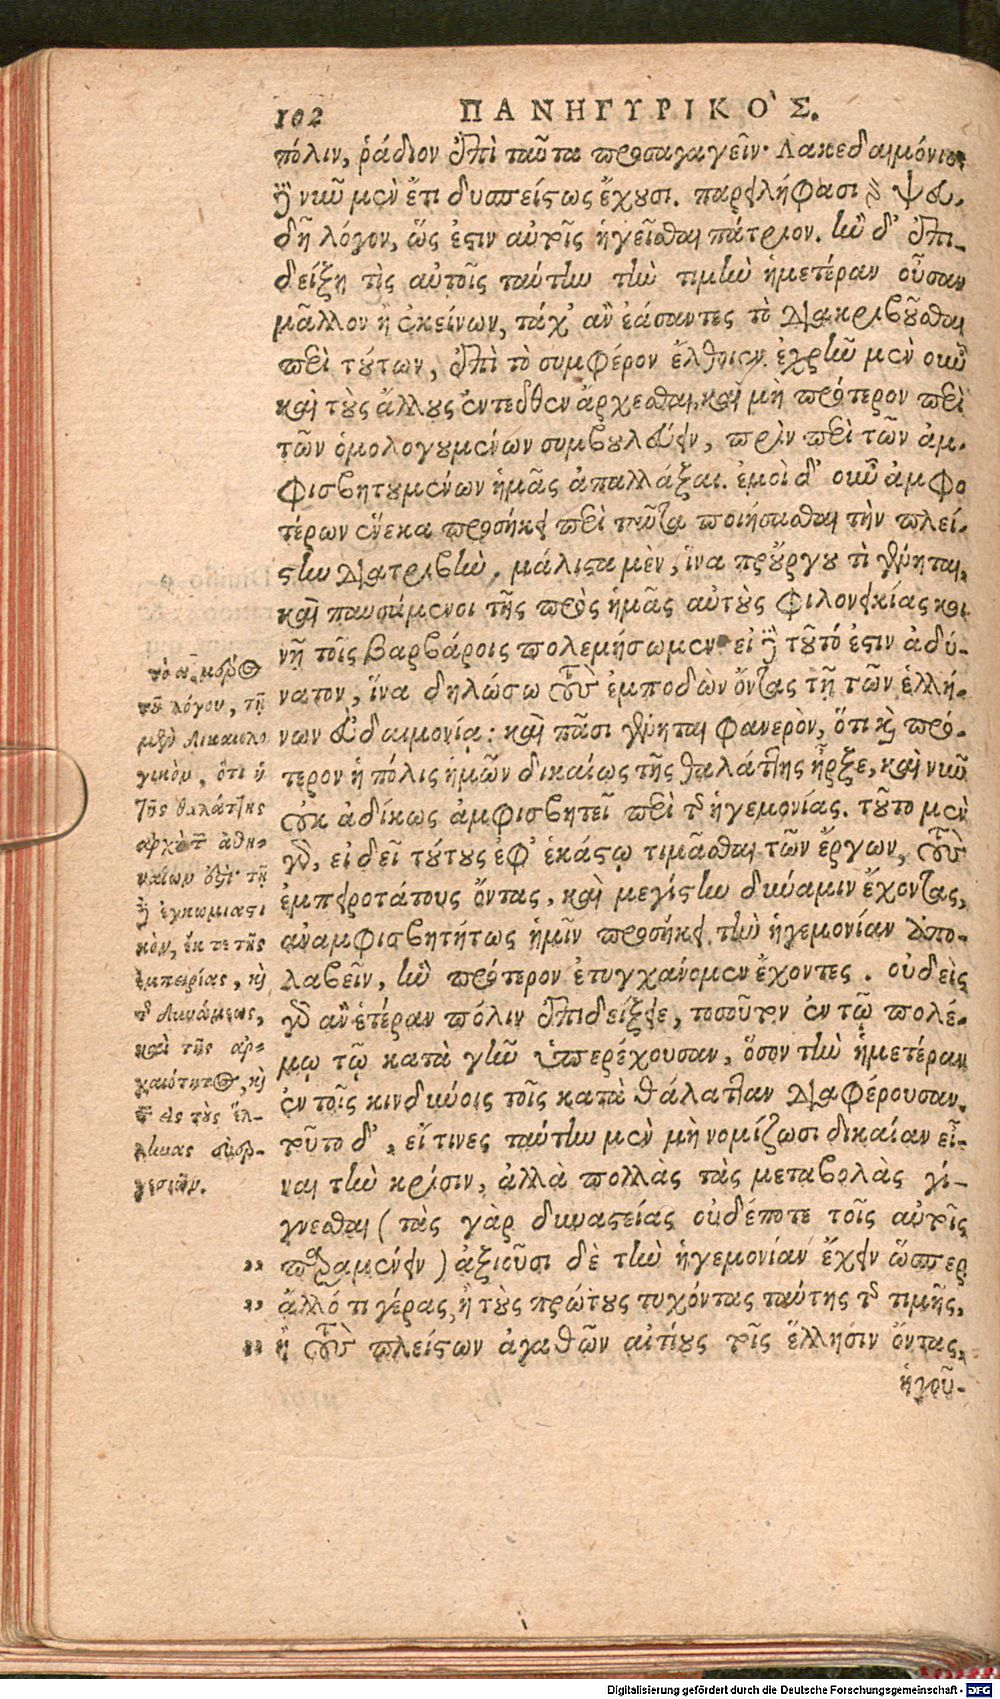 102 ΠΑΝΗΓΥΡΙΚΟ`Σ.
πόλιν, ῥᾴδιον ἐπὶ ταῦτα προσαγαγεῖν· Λακεδαιμόνιοι
γὰρ νῦν μὲν ἔτι δυσπείστως ἔχουσι. παρειλήφασι γὰρ ψευ-
δῆ λόγον, ὥς ἐστιν αὐτοῖς ἡγεῖσθαι πάτριον. ἢν δ' ἐπι-
δείξῃ τὶς αὐτοῖς ταύτην τὴν τιμὴν ἡμετέραν οὖσαν
μᾶλλον ἢ ἐκείνων, τάχ' ἂν ἐάσαντες τὸ διακριβοῦσθαι
περὶ τούτων, ἐπὶ τὸ συμφέρον ἔλθοιεν. ἐχρῆν μὲν οὖν
καὶ τοὺς ἄλλους ἐντεῦθεν ἄρχεσθαι, καὶ μὴ πρότερον περὶ
τῶν ὁμολογουμένων συμβουλεύειν, πρὶν περὶ τῶν ἀμ-
φισβητουμένων ἡμᾶς ἀπαλλάξαι. ἐμοὶ δ' οὖν ἀμφο
τέρων ἕνεκα προσήκει περὶ ταῦτα ποιήσασθαι τὴν πλεί-
στην διατριβὴν, μάλιστα μὲν, ἵνα προὔργου τὶ γένηται,
καὶ παυσάμενοι τῆς πρὸς ἡμᾶς αὐτοὺς φιλονεικίας κοι
νῇ τοῖς βαρβάροις πολεμήσωμεν· εἰ δὲ τοῦτό ἐστιν ἀδύ-
νατον, ἵνα δηλώσω τοὺς ἐμποδὼν ὄντας τῇ τῶν ἑλλή-
νων εὐδαιμονίᾳ: καὶ πᾶσι γένηται φανερὸν, ὅτι καὶ πρό-
τερον ἡ πόλις ἡμῶν δικαίως τῆς θαλάττης ἦρξε, καὶ νῦν
οὐκ ἀδίκως ἀμφισβητεῖ περὶ τῆς ἡγεμονίας. τοῦτο μὲν
γὰρ, εἰ δεῖ τούτους ἐφ' ἑκάστῳ τιμᾶσθαι τῶν ἔργων, τοὺς
ἐμπειροτάτους ὄντας, καὶ μεγίστην δύναμιν ἔχοντας,
ἀναμφισβητήτως ἡμῖν προσήκει τὴν ἡγεμονίαν ἀπο-
λαβεῖν, ἣν πρότερον ἐτυγχάνομεν ἔχοντες. οὐδεὶς
γὰρ ἂν ἑτέραν πόλιν ἐπιδείξειε, τοσοῦτον ἐν τῷ πολέ-
μῳ τῷ κατὰ γῆν ὑπερέχουσαν, ὅσον τὴν ἡμετέραν
ἐν τοῖς κινδύνοις τοῖς κατὰ θάλατταν διαφέρουσαν.
τοῦτο δ', εἴ τινες ταύτην μὲν μὴ νομίζωσι δικαίαν εἶ-
ναι τὴν κρίσιν, ἀλλὰ πολλὰς τὰς μεταβολὰς γί-
γνεσθαι (τὰς γὰρ δυναστείας οὐδέποτε τοῖς αὐτοῖς
,, παραμένειν) ἀξιοῦσι δὲ τὴν ἡγεμονίαν ἔχειν ὥσπερ
,, ἄλλό τι γέρας, ἢ τοὺς πρώτους τυχόντας ταύτης τῆς τιμῆς,
,, ἢ τοὺς πλείστων ἀγαθῶν αἰτίους τοῖς ἕλλησιν ὄντας,
ἡγοῦ-
τὸ αʹ μέρος
τοῦ λόγου, τῇ
μὲν δικαιολο
γικὸν, ὅτι ἡ
τῆς θαλάττης
ἀρχὴ τῶν ἀθη-
ναίων ἐστί· τῇ
δὲ ἐγκωμιαστι
κὸν, ἔκ τε τῆς
ἐμπειρίας, καὶ
τῆς δυνάμεως,
καὶ τῆς ἀρ-
χαιότητος, καὶ
τῆς εἰς τοὺς ἕλ-
ληνας εὐερ-
γεσιῶν.
Digitalisierung gefördert durch die Deutsche Forschungsgemeinschaft - DFG